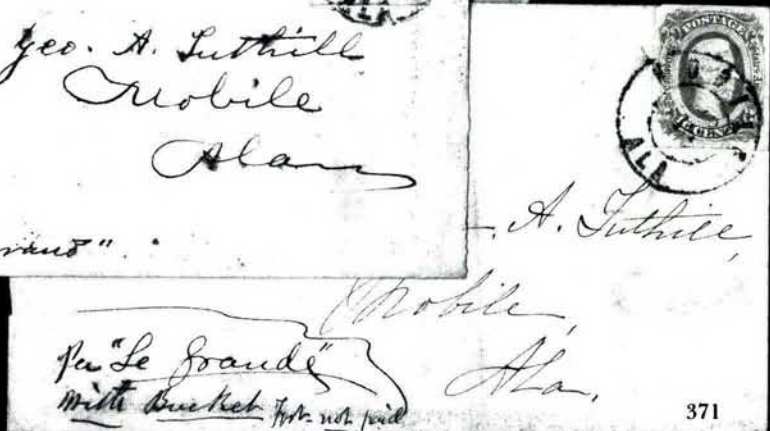 ALA
Geo. A. Tuthill
Mobile
Ala
POSTAGE
ALA
A. Tuthill,
Mobile,
Ala.
Per "Le Grande"
With Bucket not paid
371